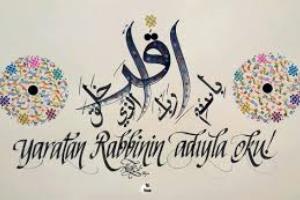 اقرأ
باسم ربك الذي خلق
Yaratan Rabbinin adıyla oku!